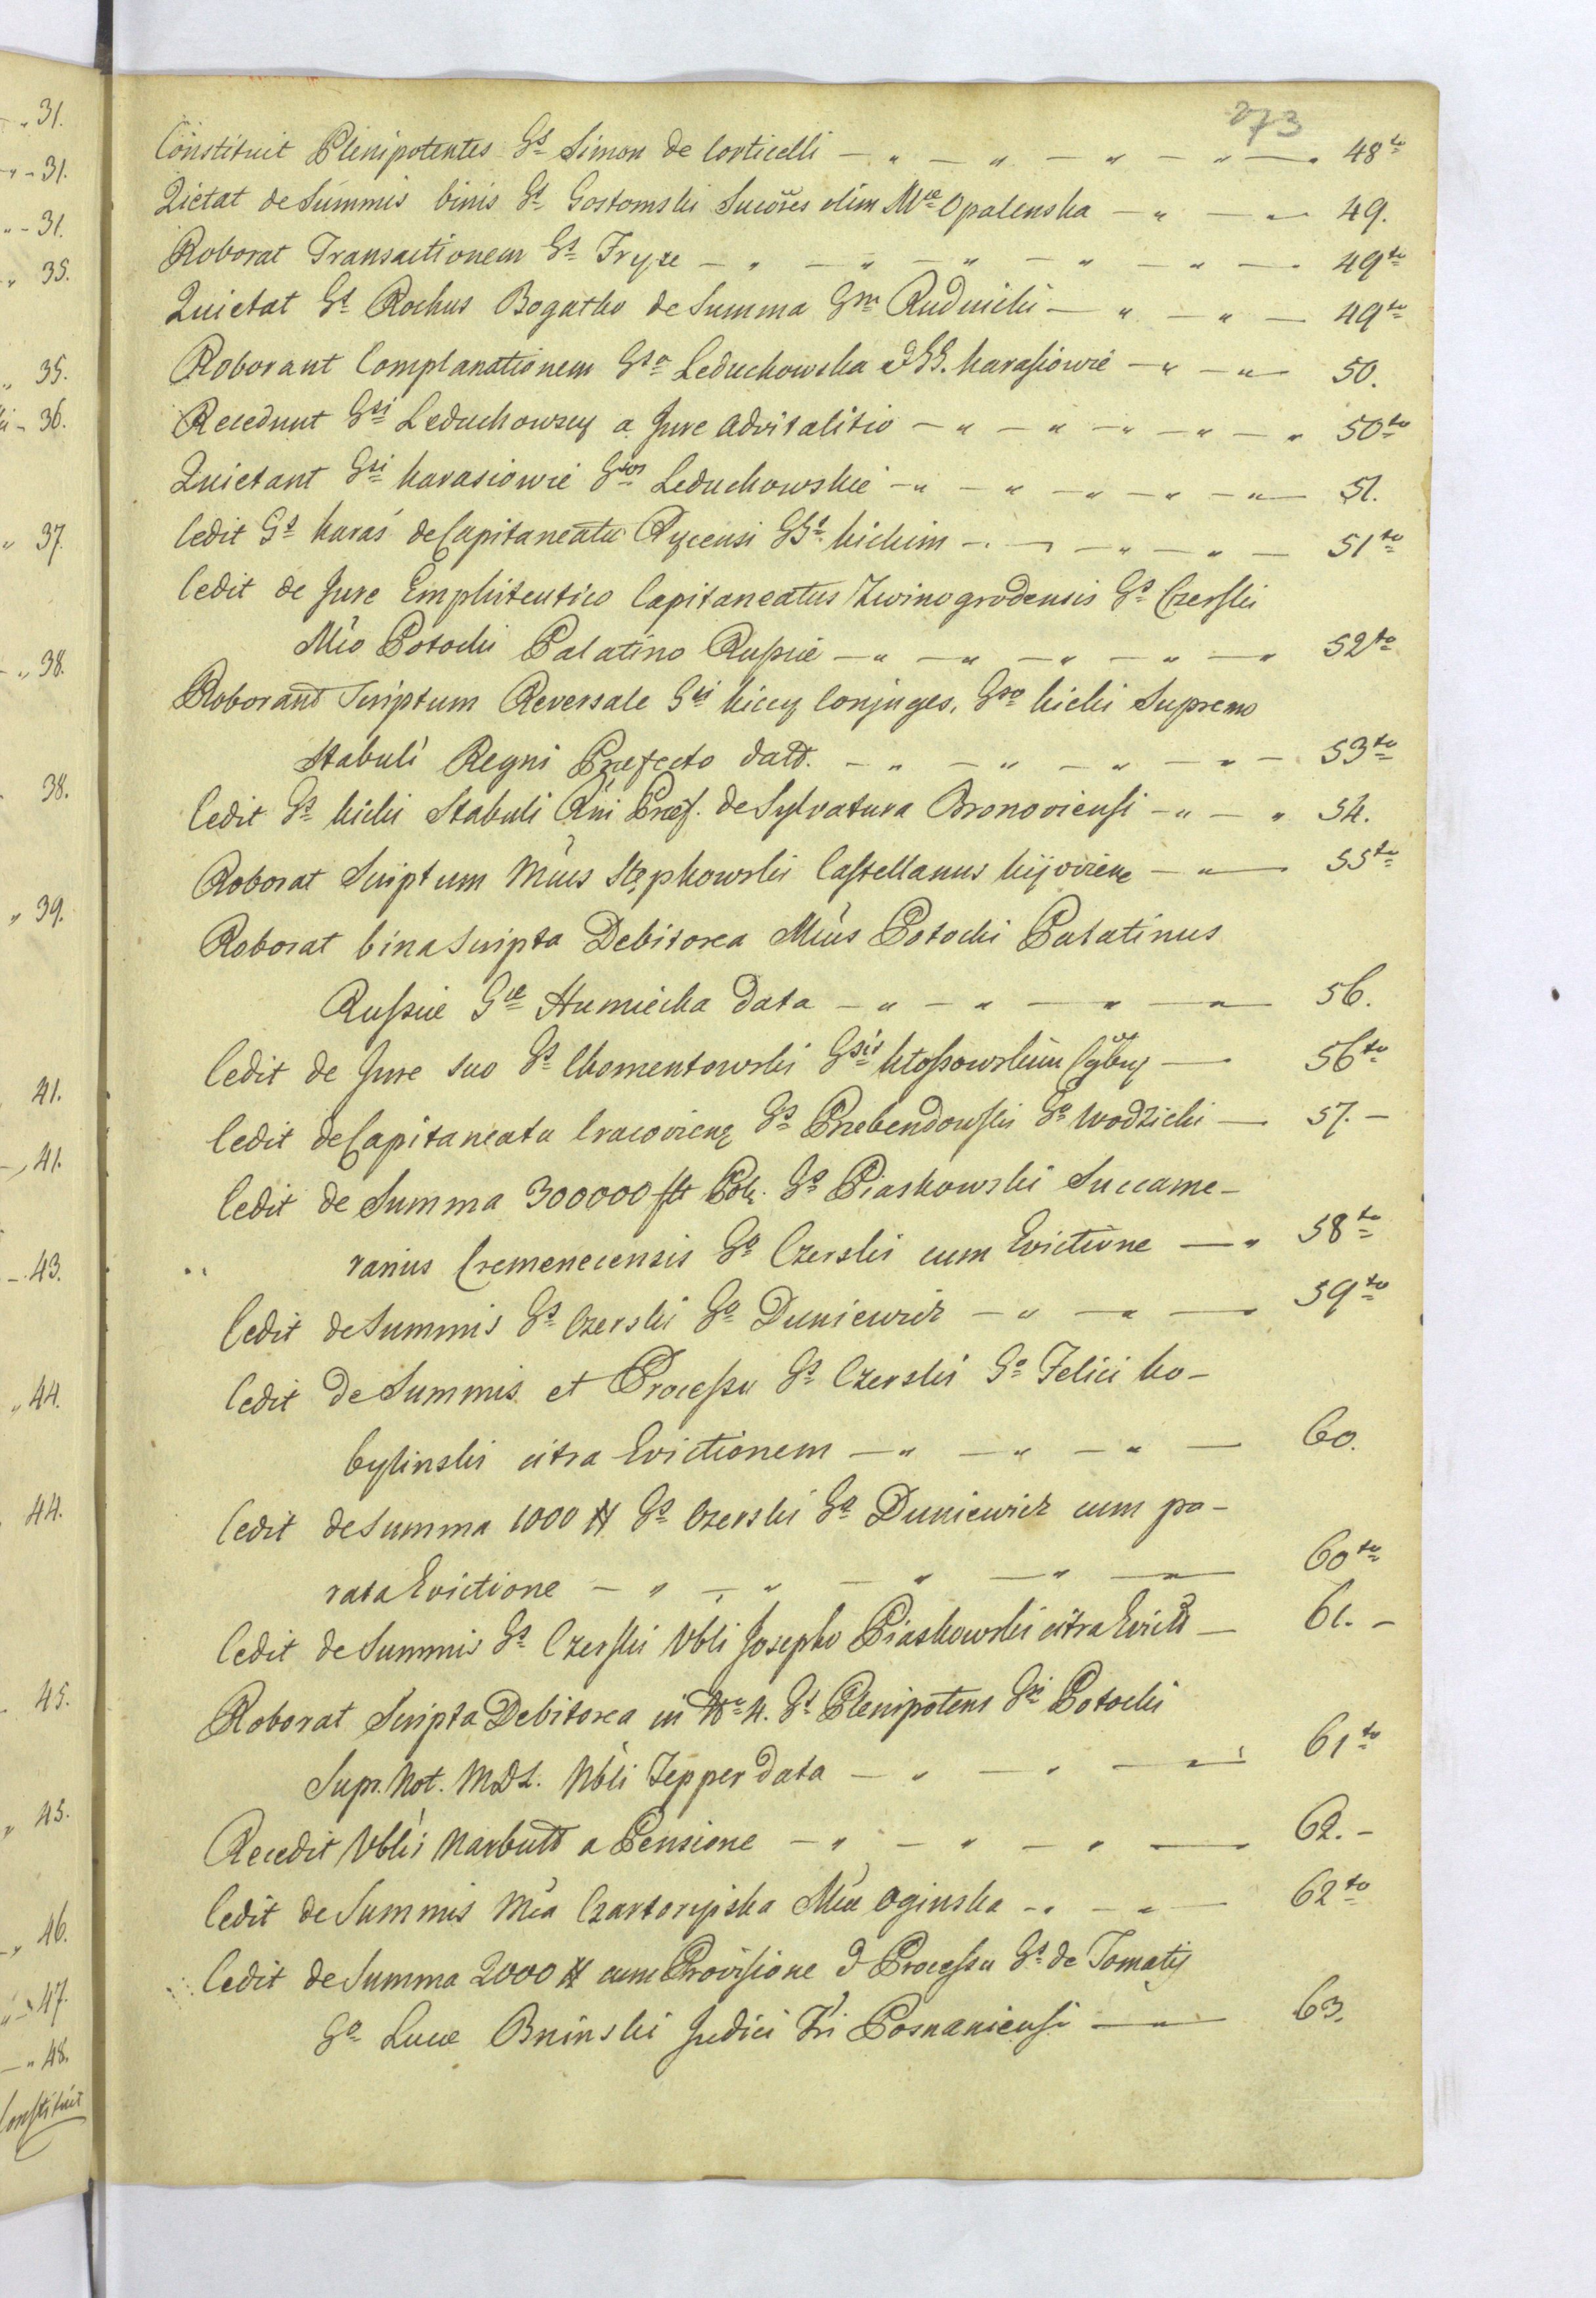 „ 31.
„ - 31.
„ - 31.
„ 35.
„ 35.
- 36.
„ 37.
- „ 38.
38.
„ 39.
41.
- „ 41.
- 43.
„ 44.
44.
45.
„ 45.
- „ 46.
„ - 47.
- „ 48.
Constituit
273
Constituit Plenipotentes Gs Simon de Corticelli — „ — „ — „ — „ — „ 48to
Qietat de Summis binis Gs Gostomski Sucöres olim Mce Opalenska — „ — „ — 49.
Roborat Transactionem Gs Fryze — „ — „ — „ — „ — „ — 49to
Quietat Gs Rochus Bogatko de Summa Gm Rudnicki — „ — „ — 49to
Roborant Complanationem Gsa Leduchowska & GG. Karasiowie — „ — „ — 50.
Recedunt Gsi Leduchowscy a Jure advitalitio — „ — „ — „ — „ — „ 50to
Quietant Gsi Karasiowie Gsos Leduchowskie — „ — „ — „ — „ — „ — 51.
Cedit Gs Karaś de Capitaneatu Rycensi GGs Kickim — „ — „ — „ — 51to
Cedit de Jure Emphiteutico Capitaneatus Zwinogrodensis Gs Czerski
Mco Potocki Palatino Russiæ — „ — „ — „ — „ — „ 52to
Roborant Scriptum Reversale Gsi Kiccy Conjuges, Gso Kicki Supremo
Stabuli Regni Præfecto datt. — „ — „ — „ — „ — 53to
Cedit Gs Kicki Stabuli Rni Præf. de Sylvatura Bronoviensi — „ — „ 54.
Roborat Scriptum Mcus Stępkowski Castellanus Kijoviene — „ — 55to
Roborat bina Scripta Debitorea Mcus Potocki Palatinus
Russiæ Gæ Humiecka data — „ — „ — „ — „ — 56.
Cedit de Jure suo Gs Chomentowski Gsis Kłossowskim — 56to
Cedit de Capitaneatu Cracoviene Gs Przebendowski Go Wodzicki — 57. -
Cedit de Summa 300000 fl Pol. Gs Piaskowski Succame-
rarius Cremenecensis Go Czerski cum Evictione — „ 58to
Cedit de Summis Gs Czerski Go Duniewicz — „ — „ — 59to
Cedit de Summis et Processu Gs Czerski Go Felici Ko-
bylinski citra Evictionem — „ — „ — „ — 60.
Cedit de Summa 1000 # Gs Czerski Go Duniewicz cum pa-
rata Evictione — „ — „ — „ — „ — „ — 60to
Cedit de Summis Gs Czerski Nbli Josepho Piaskowski citra Evictt — 61. -
Roborat Scripta Debitorea in Nro 4. Gs Plenipotens Gsi Potocki
Supr. Not. MDL. Nbli Tepper data — „ — „ — „ — 61to
Recedit Nblis Narbutt a Pensione — „ — „ — „ — 62. -
Cedit de Summis Mca Czartoryiska Mcæ Oginska — „ — „ — 62to
Cedit de Summa 2000 # cum Provisione & Processu Gs de Tomatis
Go Lucæ Bninski Judici Tri Posnaniensi — „ — 63.